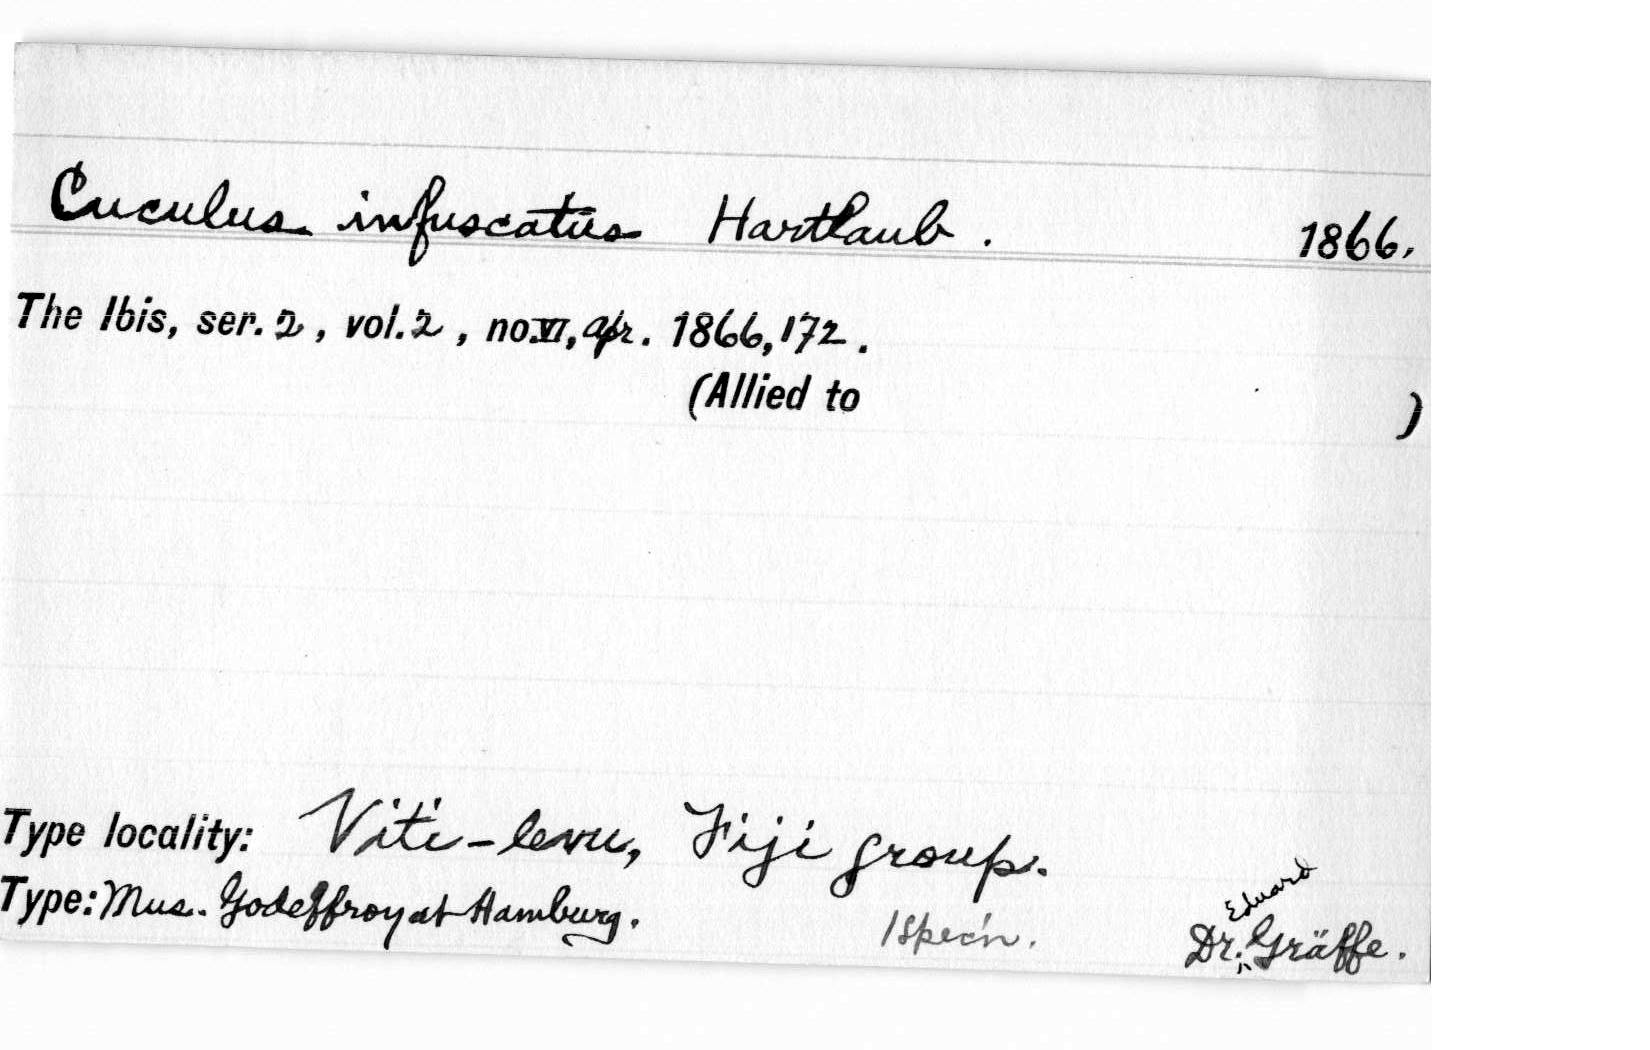 Cuculus infuscatus Hartlaub. 1866.
The Ibis, ser. 2, vol. 2, no. VI, apr. 1866, 172.
(Allied to )
Type locality: Viti-levu, Fiji group.
Type: Mus. Godeffroy at Hamburg. 1 spec'n. Dr. ^ Eduard Gräffe.